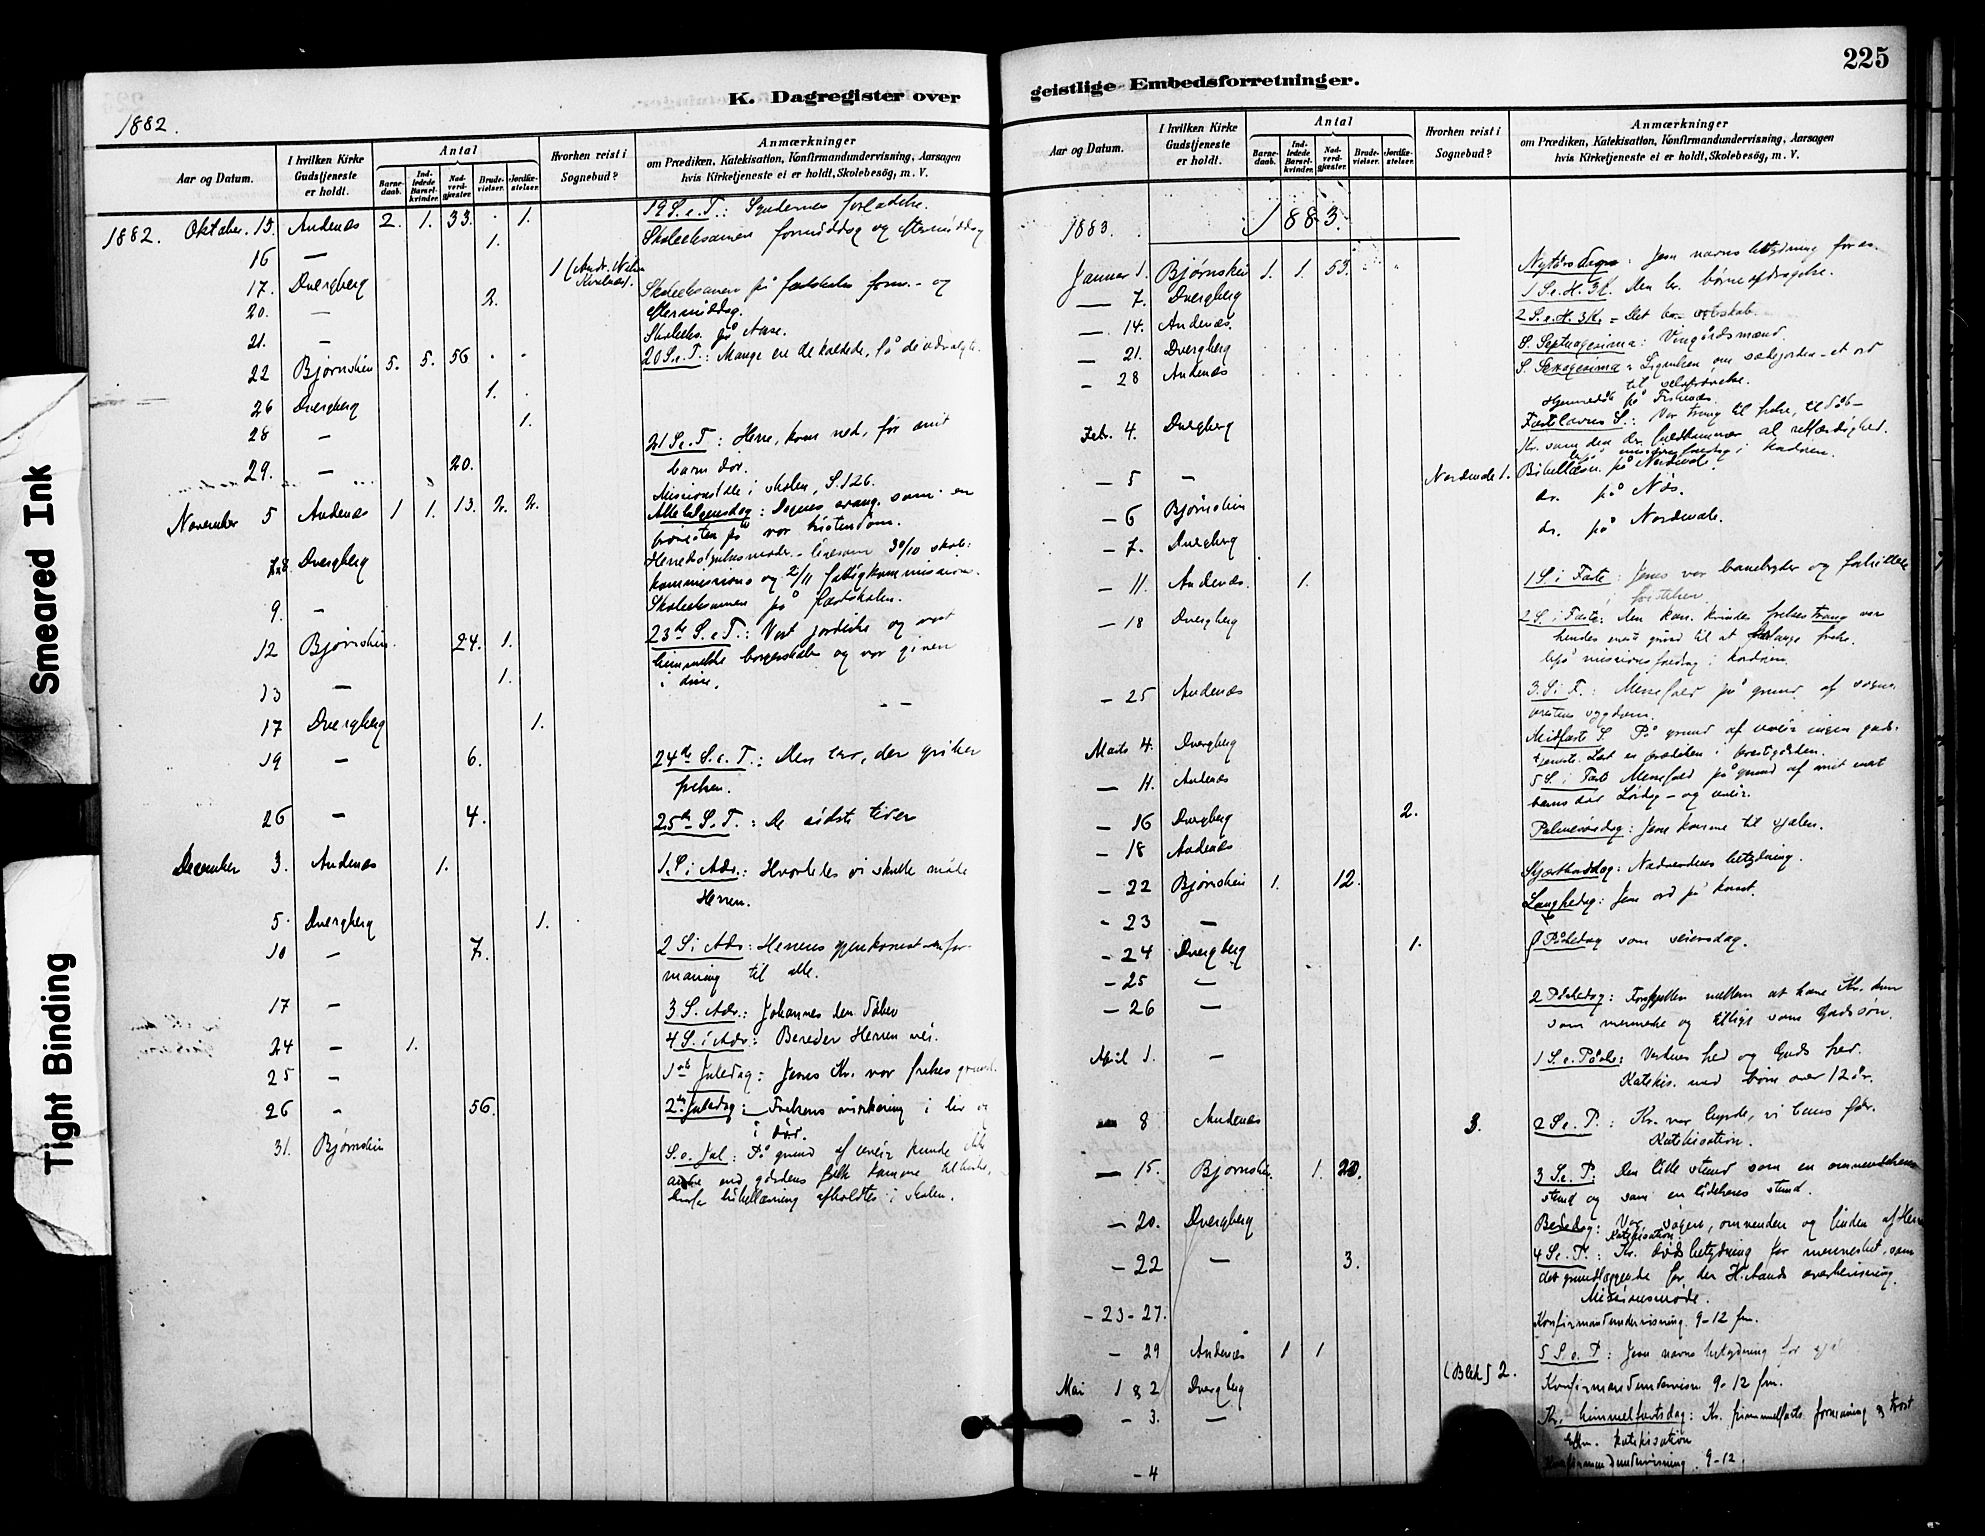 225
K. Dagregister over
geistlige Embedsforretninger.
1882.
Aar og Datum.
I hvilken Kirke
Gudstjeneste
er holdt.
Antal
Barne-
daab.
Ind-
ledede
Barsel-
kvinder.
Nad-
verd-
gjæster.
Brude-
vielser.
Jordfæ-
stelser.
Hvorhen reist i
Sognebud?
Anmærkninger
om Prædiken, Katekisation, Konfirmandundervisning, Aarsagen
hvis Kirketjeneste ei er holdt, Skolebesøg, m. V.
1882. Oktober. 15. Andenæs 2. 1. 33. 1. 19 S.e.T.: Syndernes forladelse.
16 — 1. Skoleeksamen formiddag og eftermiddag
17. Dvergberg 1 (Andr. Nilsen
20. — 2. Skoleeksamen på fastskolen form.- og
eftermiddag.
21. — Skoleeks. på Aase.
22 Bjørnskin 5. 5. 56 20 S.e.T.: Mange ere de kaldede, få de udvalgte.
26 Dvergberg 1.
28 — 1.
29. — 20. 21 S.e.T: Herre, kom ned, før mit
barn dør.
Missionsmøte i skolen, S. 126.
November 5 Andenæs 1 1. 13. 2. 2. Allehelgensdag: Dagens evang. som en
prøvesten på vor kristendom.
7 & 8 Dvergberg Herredsstyrelsesmøde - ligesom 30/10 skole-
kommissions og 2/11 fattigkommission.
9. — Skoleeksamen på fastskolen.
12 Bjørnskin. 24. 1. 23de S.e.T.: Vort jordiske og vort
himmelske borgerskab og vor given
i disse.
13 — 1.
17 Dvergberg 1.
19 — 6. 24de S.e.T.: Den tro, der griber
frelsen.
26 — 4. 25de S.T.: De sidste tider
December 3. Andenæs 1. 1. S. i Adv.: Hvorledes vi skulle møde
Herren.
5. Dvergberg 1.
10 — 7. 2 S. i Adv: Herrens gjenkomst en for-
maning til alle.
17 — 3 S. Adv.: Johannes den Døber
24 — 1. 4 S. i Adv: Bereder Herren vei.
25 — 1ste Juledag: Jesus Kr. vor frelses grund.
26 — 56. 2den Juledag: Frelsens virkning i liv og
i død.
31. Bjørnskin S.e. Jul: På grund af uveir kunde ikke
andre end gårdens folk komme til kirke,
hvorfor bibellæsning afholdtes i skolen.
Aar og Datum.
I hvilken Kirke
Gudstjeneste
er holdt.
Antal
Barne-
daab.
Ind-
ledede
Barsel-
kvinder.
Nad-
verd-
gjæster.
Brude-
vielser.
Jordfæ-
stelser.
Hvorhen reist i
Sognebud?
Anmærkninger
om Prædiken, Katekisation, Konfirmandundervisning, Aarsagen
hvis Kirketjeneste ei er holdt, Skolebesøg, m. V.
1883. 1883.
Januar 1. Bjørnskin 1. 1. 53. Nytårsdag: Jesu navns betydning for os.
— 7. Dvergberg 1 S.e.H. 3 K. Den kr. børneopdragelse.
— 14. Andenæs. 2 S.e.H. 3 K. - Det kr. ægteskab.
— 21. Dvergberg S. Septuagesima: Vingårdsmænd.
— 28 Andenæs S. Sexagesima: Lignelsen om sædejorden - et ord
til selvprøvelse.
Febr. 4. Dvergberg Fastelavns S.: Vor trang til frelse, til dåb -
Kr. som den, der fuldkommer al retfærdighed.
— 5 — Nordmele 1. Bibellæsn. på Nordmele.
— 6 Bjørnskin do. på Nøs.
— 7. Dvergberg do. på Nordmele.
— 11. Andenæs. 1. 1 S. i Faste: Jesus vor banebryder og forbillede
i fristelser.
— 18 Dvergberg 2 S. i Faste: Den kan. kvindes frelsestrang var
hendes eneste grund til at forlange frelse.
— 25 Andenæs 3. S. i F.: Messefald på grund af sogne-
prestens sygdom.
Marts 4. Dvergberg Midfaste S. På grund af uveir ingen guds-
tjeneste. Læst en prædiken i prestegården.
— 11. Andenæs 5 S. i Faste Messefald på grund af mit eget
barns dør Lørdag - og uveir.
— 16 Dvergberg 2.
— 18 Andenæs Palmesøndag: Jesu komme til sjælen.
— 22 Bjørnskin 1. 12. Skjærthorsdag: Nadverdens betydning.
— 23 — Langfredag: Jesu ord på korset.
— 24 Dvergberg 1.
— 25 — 1 Påskedag som seiersdag.
— 26 — 2 Påskedag: Forskjellen mellem at have Kr. kun
som menneske og tillige som Guds søn.
April 1. — 1 S.e. Påske: Verdens fred og Guds fred.
Katekis. med børn over 12 år.
— 8 Andenæs 3. 2 S.e.P.: Kr. vor hyrde, vi hans får.
Katekisation.
— 15. Bjørnskin. 1. 20. 3 S.e.P: Den lille stund som en omvendelsens
stund og som en lidelsens stund.
— 20. Dvergberg Bededag: Vor søgen, omvenden og finden af Herren
Katekisation
— 22 — 3. 4 S.e.P.: Kr. døds betydning for mennesket, som
det grundlæggende for den H. Aands overbevisning.
Missionsmøde.
— 23-27. Konfirmantundervisning. 9-12 fm.
— 29 Andenæs 1 1 5 S.e.P: Jesu navns betydning for
Mai 1 & 2 Dvergberg (Blek) 2. Konfirmandundervisn. 9-12 fm.
— 3. — Kr. himmelfartsdag: Kr. himmelfarts formaning & trost
Eftm. katekisation
— 4 Konfirmandundervisning. 9-12.
Smeared Ink
Tight Binding